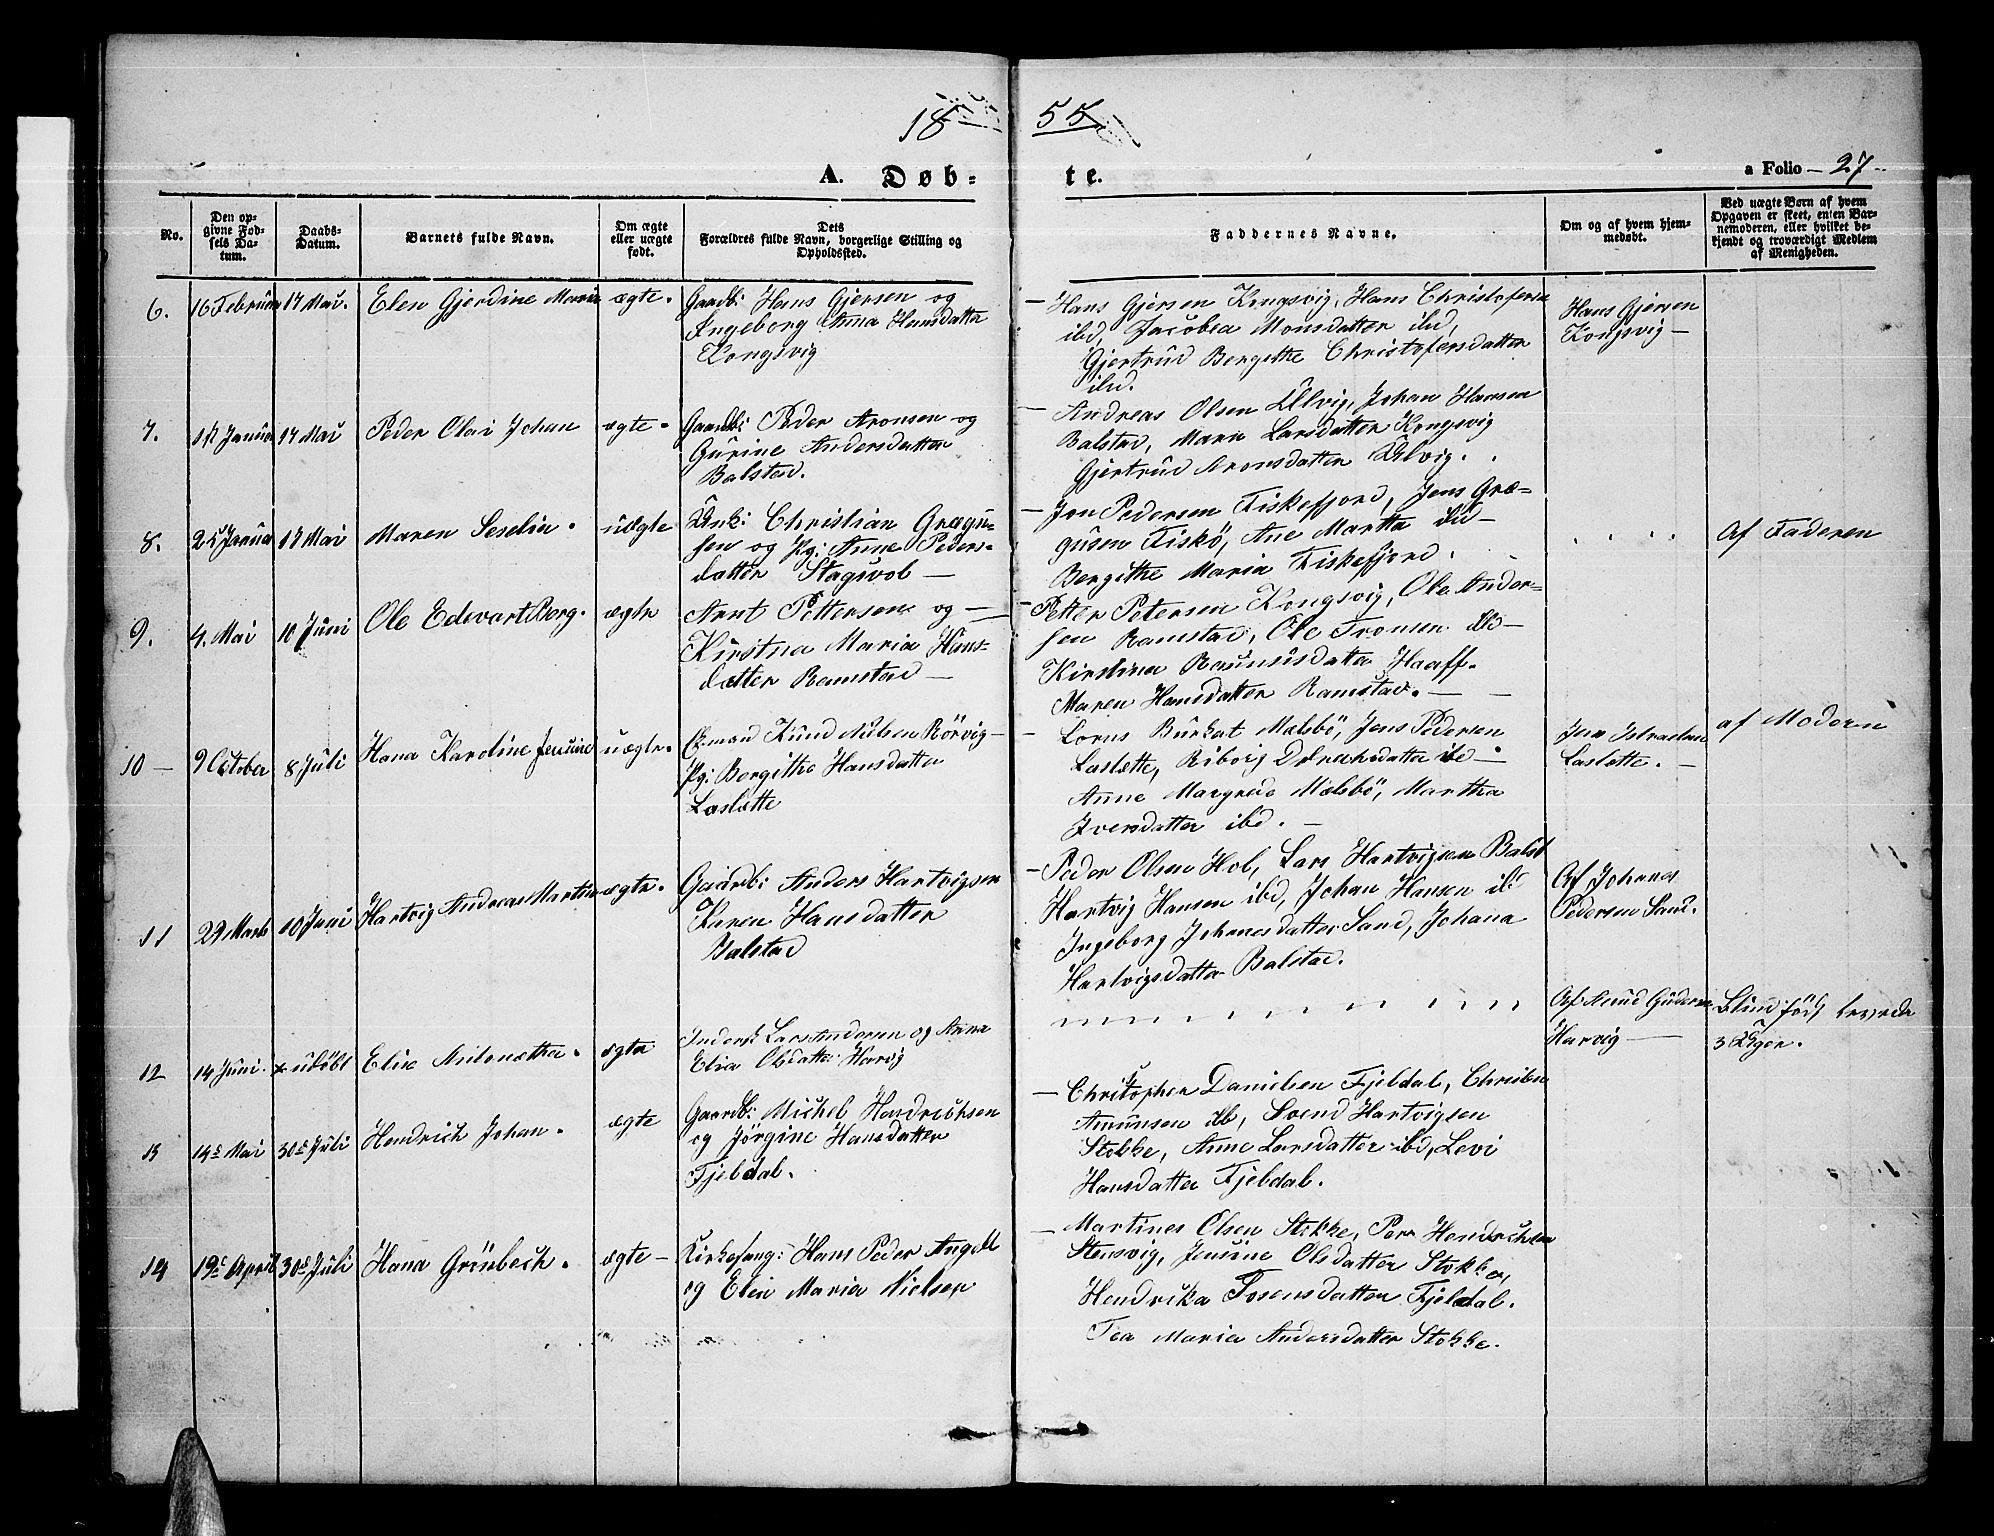 18 55
A. Døb- te.
a Folio 27
No.
Den opgivne Fødsels Datum.
Daabs-Datum.
Barnets fulde Navn.
Om ægte eller uægte født.
Dets Forældres fulde Navn, borgerlige Stilling og Opholdssted.
Faddernes Navne.
Om og af hvem hjemmedøbt.
Ved uægte Børn af hvem Opgaven er skeet, enten Barnemoderen, eller hvilket bekjendt og troværdigt Medlem af Menigheden.
6. 16 Februar 17 Mai. Elen Gjerdine Maria ægte.
Gaardb: Hans Gjersen og
Ingeborg Anna Hansdatter
Kongsvig
Hans Gjersen Kongsvig, Hans Christofersen
ibd, Jacobea Monsdatter ibd,
Gjertrud Bergithe Christofersdatter
ibd.
Hans Gjersen
Kongsvig
7. 17 Januar 17 Mai Peder Olai Johan ægte
Gaardb: Peder Aronsen og
Gurine Andersdatter
Balstad.
Andreas Olsen Ulvig, Johan Hansen
Balstad, Maria Larsdatter Kongsvig
Gjertrud Aronsdatter Ulvig.
8. 25 Januar 17 Mai Maren Seselia. uægte
Unk: Christian Grægu-
sen og Pg: Anne Peders-
datter Stagsvol
Jon Pedersen Fiskefjord, Jens Græ-
gusen Fiskö, Ane Martha ibd
Bergithe Maria Fiskefjord.
Af Faderen
9. 4. Mai 10 Juni Ole Edevart Berg. ægte
Arnt Pettersen og
Kirstna Maria Hans-
datter Ramstad
Petter Petersen Kongsvig, Ole Ander-
sen Ramstad, Ole Tronsen ibd
Kirstina Rasmusdatter Haaff.
Maren Hansdatter Ramstad.
10 9 October 8 Juli Hana Karoline Jensine uægte
Knud Nilsen Rörvig
Pg: Bergithe Hansdatter
Laslette
Lorns Burkat Melsbö, Jens Pedersen
Laslette, Riborg Didrichsdatter ibd
Anne Margrete Melsbö, Martha
Iversdatter ibd.
Jens Istraelsen
Laslette.
af Moderen
11 29 Marts 10 Juni Hartvig Andreas Martin ægte.
Gaardb: Anders Hartvigsen
Karen Hansdatter
Balstad
Peder Olsen Hol, Lars Hartvigsen Balst
Hartvig Hansen ibd, Johan Hansen ibd
Ingeborg Johanesdatter Sand, Johana
Hartvigsdatter Balstad.
Af Johanes
Pedersen Sand.
12 14 Juni udöbt Elise ægte
Inderst Lars Andersen og Anna
Elisa Olsdatter Harvig
Af
Harvig
Blind föd, levede
3 Uger.
13 14de Mai 30de Juli Hendrich Johan. ægte
Gaardb: Michel Hendrichsen
og Jörgine Hansdatter
Fjeldal.
Christopher Danielsen Fjeldal, Christen
Amunsen ib, Svend Hartvigsen
Stokke, Anne Larsdatter ibd, Levi
Hansdatter Fjeldal.
14 19de April 30de Juli Hana Grönbech. ægte
Kirkesang: Hans Peder Angell
og Elen Maria Nielsen
Martines Olsen Stokke, Per Hendrichsen
Stensvig, Jensine Olsdatter Stokke,
Hendrika Tosensdatter Fjeldal.
Tea Maria Andersdatter Stokke.